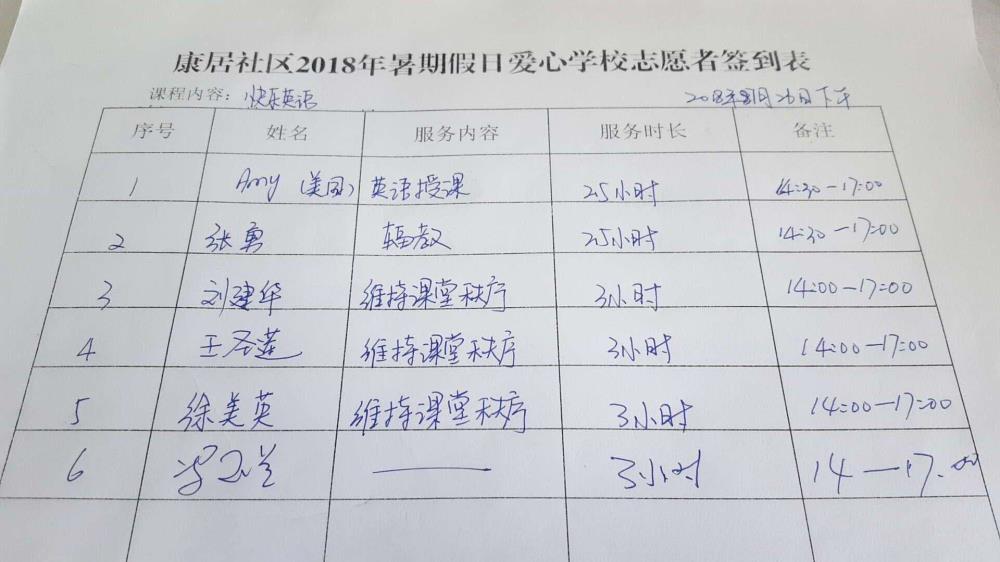 康居社区2018年暑期假日爱心学校志愿者签到表
课程内容：快乐英语 2018年8月26日下午
序号 姓名 服务内容 服务时长 备注
1 Amy（美国） 英语授课 2.5小时 14:30—17:00
2 张勇 辐教 2.5小时 14:30—17:00
3 刘建华 维持课堂秩序 3小时 14:00—17:00
4 王 维持课堂秩序 3小时 14:00—17:00
5 徐美英 维持课堂秩序 3小时 14:00—17:00
6 —— 3小时 14—17:00